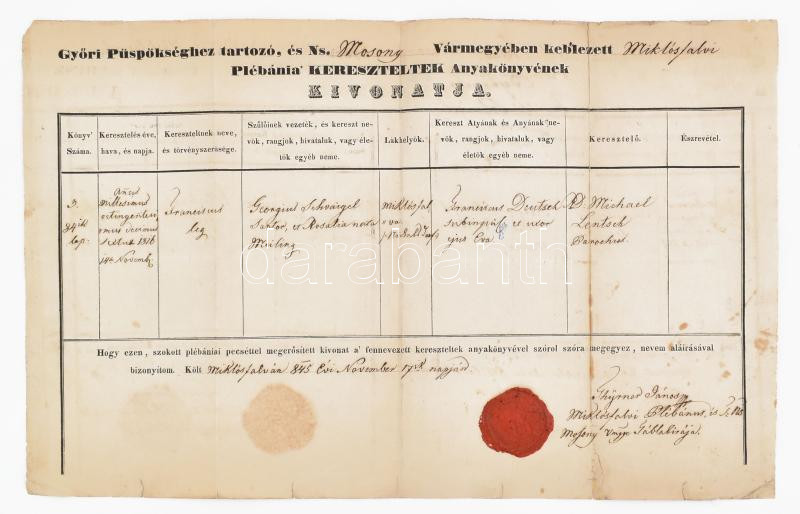 Győri Püspökséghez tartozó, és Ns. Mosony Vármegyében keblezett Miklósfalvi
Plébánia' KERESZTELTEK Anyakönyvének
KIVONATJA.
Könyv' Száma.
Keresztelés éve, hava, és napja.
Kereszteltnek neve, és törvényszerüsége.
Szülőinek vezeték, és kereszt ne-
vök, rangjok, hivataluk, vagy éle-
tök egyéb neme.
Lakhelyök.
Kereszt Atyának és Anyának' ne-
vök, rangjok, hivataluk, vagy
életök egyéb neme.
Keresztelő.
Észrevétel.
lap:
Anno
Millesimus
1816
14a Novemb.
Franciscus
leg
Georgius
Sartor, et Rosalia nata
Miklósfal
va
Franciscus Deutsch
et uxor
ejus Eva
D. Michael
Lentsch
Parochus
darabanth
Hogy ezen, szokott plébániai pecséttel megerősitett kivonat a' fennevezett kereszteltek anyakönyvével szórol szóra megegyez, nevem aláirásával
bizonyítom. Költ Miklósfalván 845 Évi November 17k napján
János
Miklósfalvi Plébánus, és T. Ns
Mosony Vmgye Táblabirája.